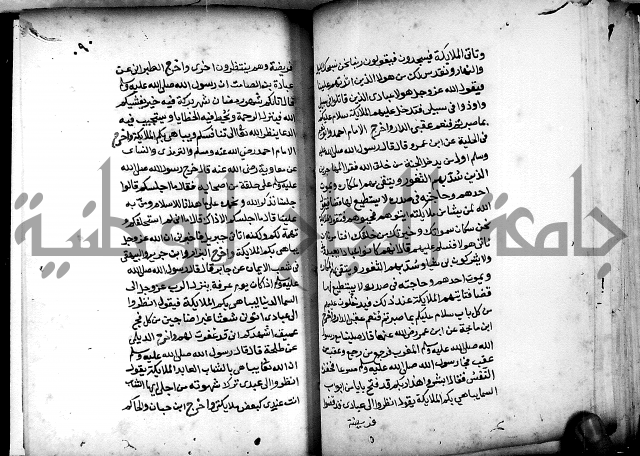 وتاتي الملايكة فيسجدون فيقولون ربنا نحن نسبحك الليل
والنهار ونقدس لك من هولا الذين اثرتهم علينا
فيقول الله عز وجل هولا عبادي الذين قاتلوا في سبيلي
واوذوا في سبيلي فتدخل عليهم الملايكة سلام عليكم
بما صبرتم فنعم عقبى الدار واخرج الامام احمد
في الحلية عن ابن عمرو قال قال رسول الله صلى الله عليه
وسلم اول من يدخل الجنة من خلق الله فقرا المهاجرين
الذين تسد بهم الثغور ويتقى بهم المكاره ويموت
احدهم وحاجته في صدره لا يستطيع لها قضا فيقول
الله لمن يشا من ملايكته ايتوهم فحيوهم فتقول الملايكة
نحن سكان سمواتك وخيرتك من خلقك افتامرنا ان
ناتي هولا فنسلم عليهم قال انهم كانوا عبادا يعبدوني
ولا يشركون بي شيا وتسد بهم الثغور ويتقى بهم
ويموت احدهم وحاجته في صدره لا يستطيع لها
قضا فتاتيهم الملايكة عند ذلك فيدخلون عليهم
من كل باب سلام عليكم بما صبرتم فنعم عقبى الدار واخرج
ابن ماجة عن ابن عمر رضي الله عنهما قال صلينا مع رسول
الله صلى الله عليه وسلم المغرب فرجع من رجع وعقب من
عقب فجا رسول الله صلى الله عليه وسلم مسرعا قد حفزه
النفس فقال ابشروا هذا ربكم قد فتح بابا من ابواب
السما يباهي بكم الملايكة يقول انظروا الى عبادي قد قضوا
فريضة
٩٠
فريضة وهم ينتظرون اخرى واخرج الطبراني عن
عبادة بن الصامت ان رسول الله صلى الله عليه وسلم
قال اتاكم شهر رمضان شهر بركة فيه خير يغشيكم
الله فينزل الرحمة ويحط فيه الخطايا ويستجيب فيه
الدعا ينظر الله تعالى الى تنافسكم ويباهي بكم الملايكة واخرج
الامام احمد رضي الله عنه ومسلم والترمذي والنساي
عن معاوية رضي الله عنه قال خرج رسول الله صلى الله
عليه وسلم على حلقة من اصحابه فقال ما اجلسكم قالوا
جلسنا نذكر الله ونحمده على ما هدانا للاسلام ومن به
علينا قال ما اجلسكم الا ذلك قال اما اني لم استحلفكم
تهمة لكم ولكنه اتاني جبريل فاخبرني ان الله عز وجل
يباهي بكم الملايكة واخرج البزار وابن جرير والبيهقي
في شعب الايمان عن جابر قال قال رسول الله صلى الله
عليه وسلم اذا كان يوم عرفة ينزل الرب عز وجل الى
السما الدنيا يباهي بكم الملايكة فيقول انظروا
الى عبادي اتوني شعثا غبرا ضاجين من كل فج
عميق اشهدكم اني قد غفرت لهم واخرج الديلمي
عن طلحة قال قال رسول الله صلى الله عليه وسلم
ان الله تعالى يباهي بالشاب العابد الملايكة يقول
انظروا الى عبدي ترك شهوته من اجلي ايها الشاب
انت عندي كبعض ملايكتي واخرج ابن حبان والحاكم
جامعة النجاح الوطنية